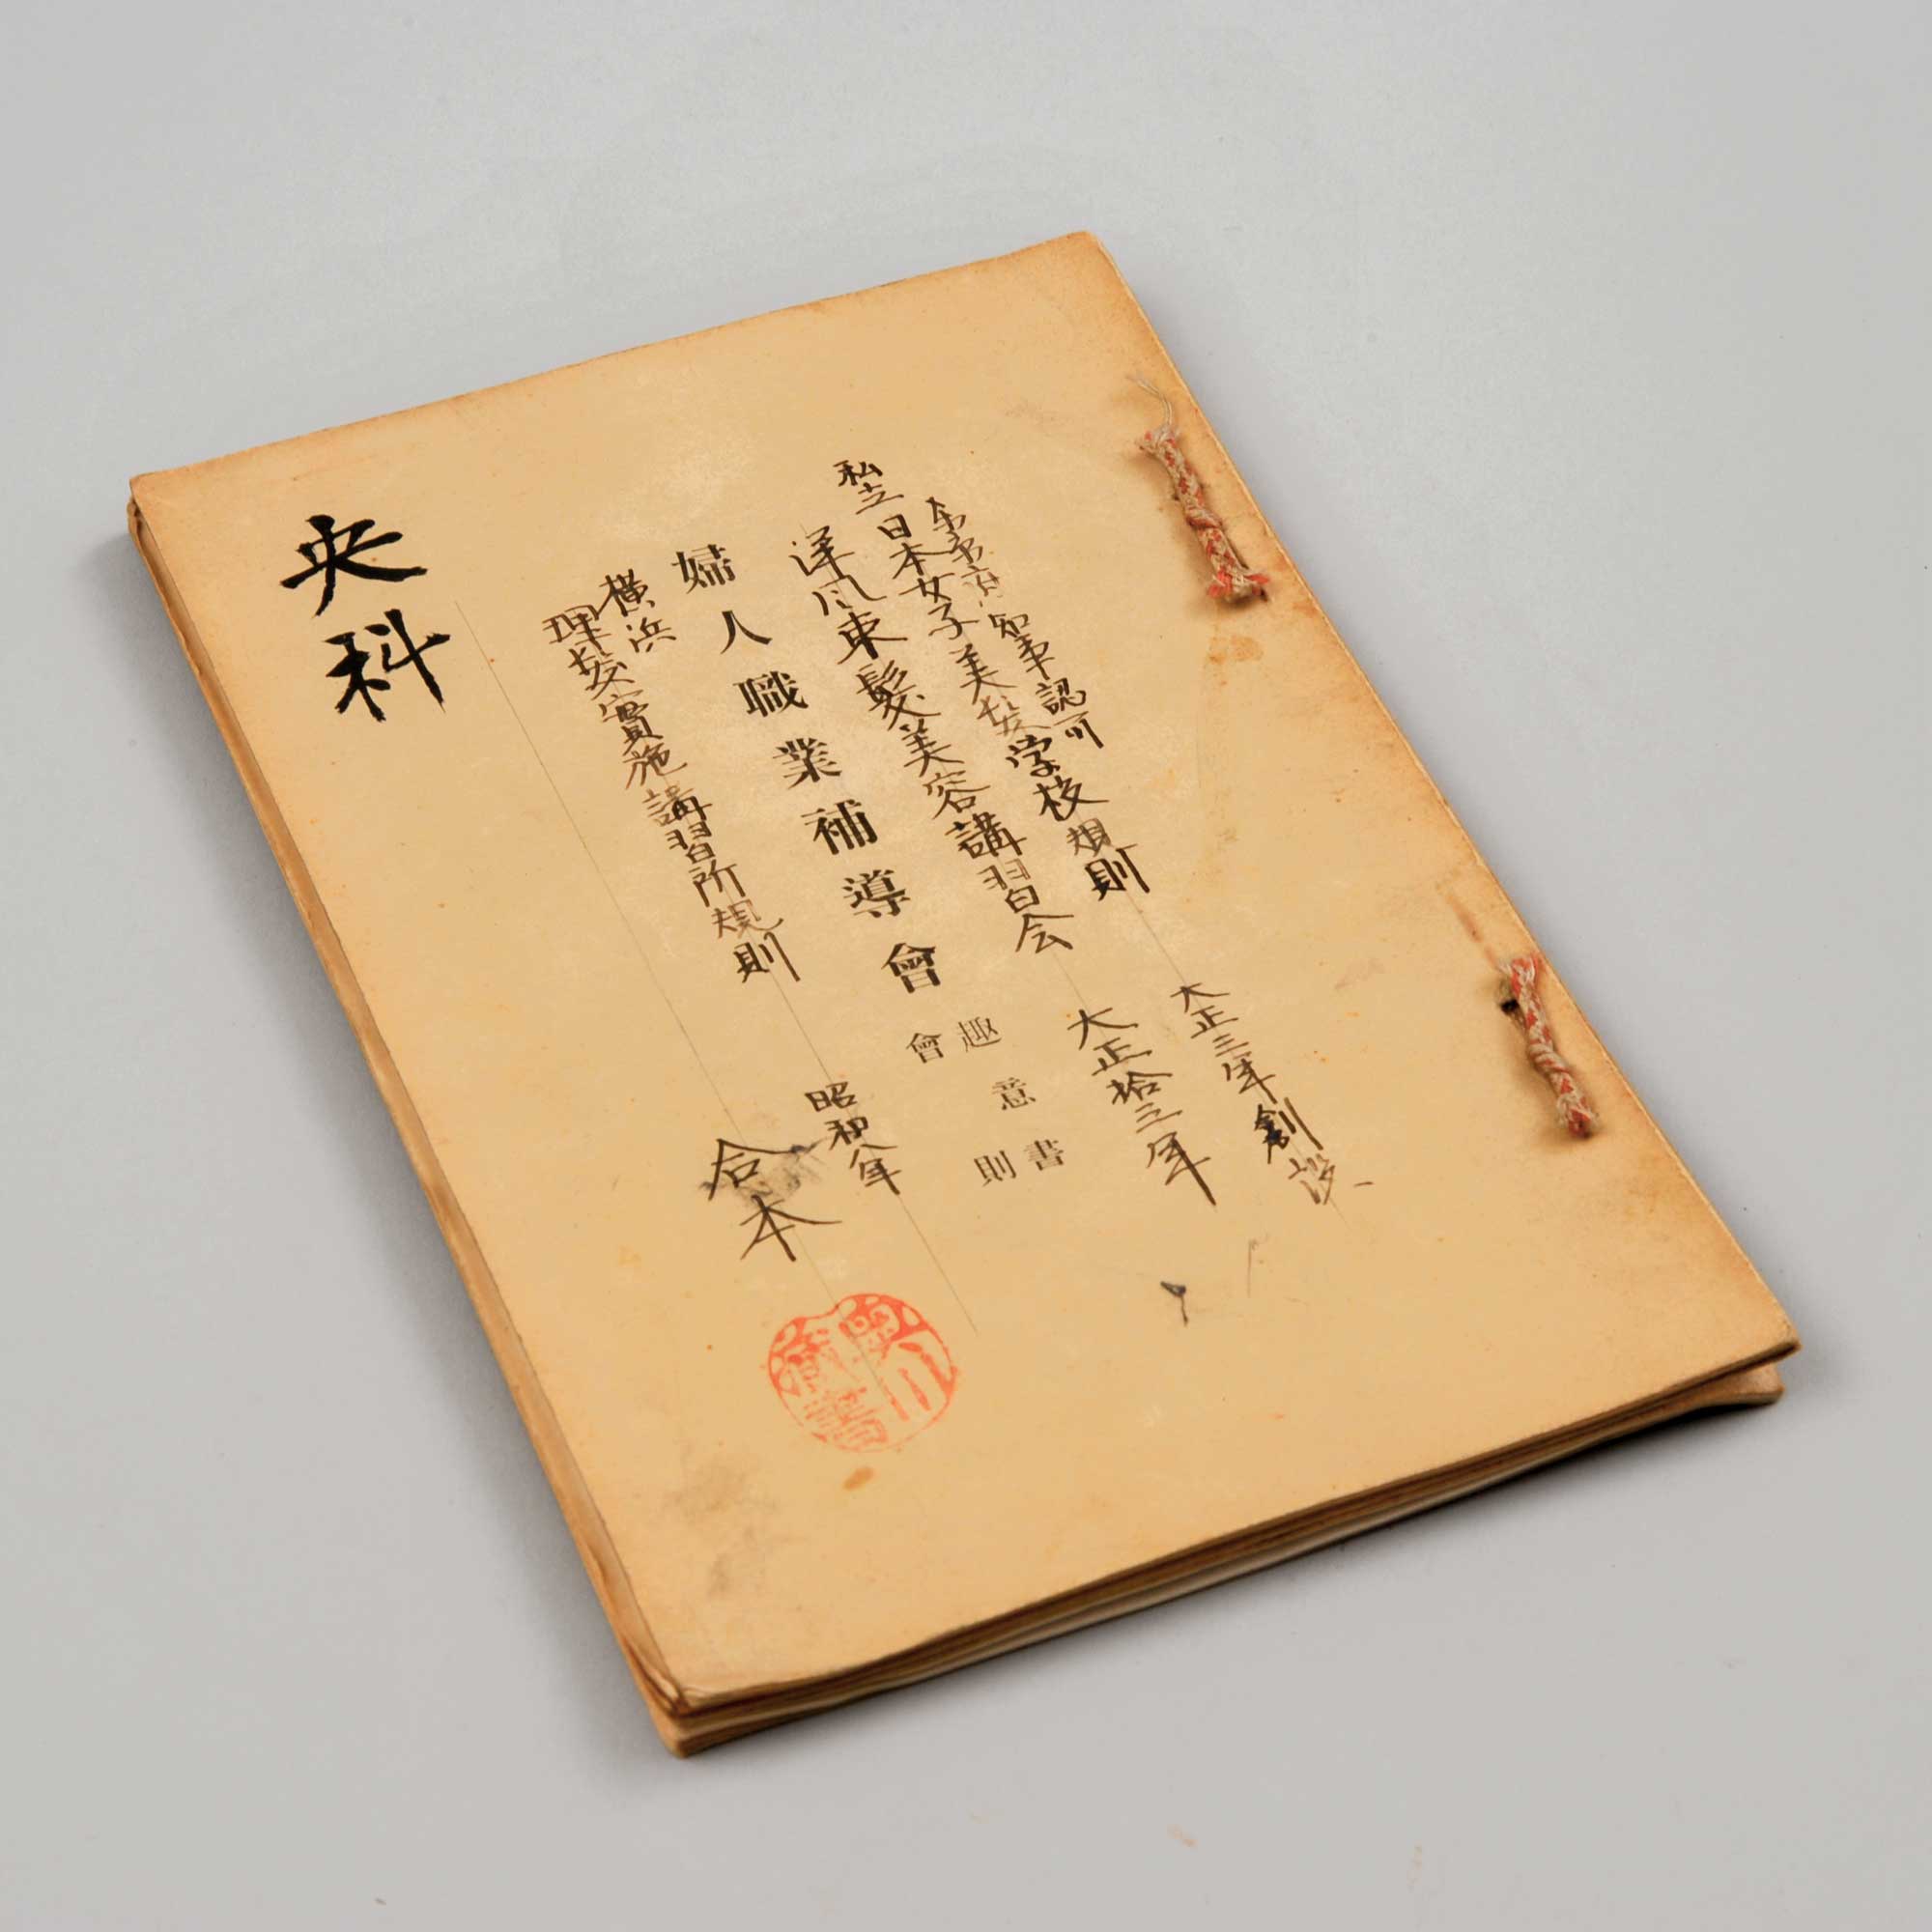 知事認可
私立日本女子美髪学校規則 大正三年創設
洋風束髪美容講習会 大正拾三年
婦人職業補導會 趣意書
會則
横浜
理髪實施講習所規則 昭和八年
合本
央科
藏書